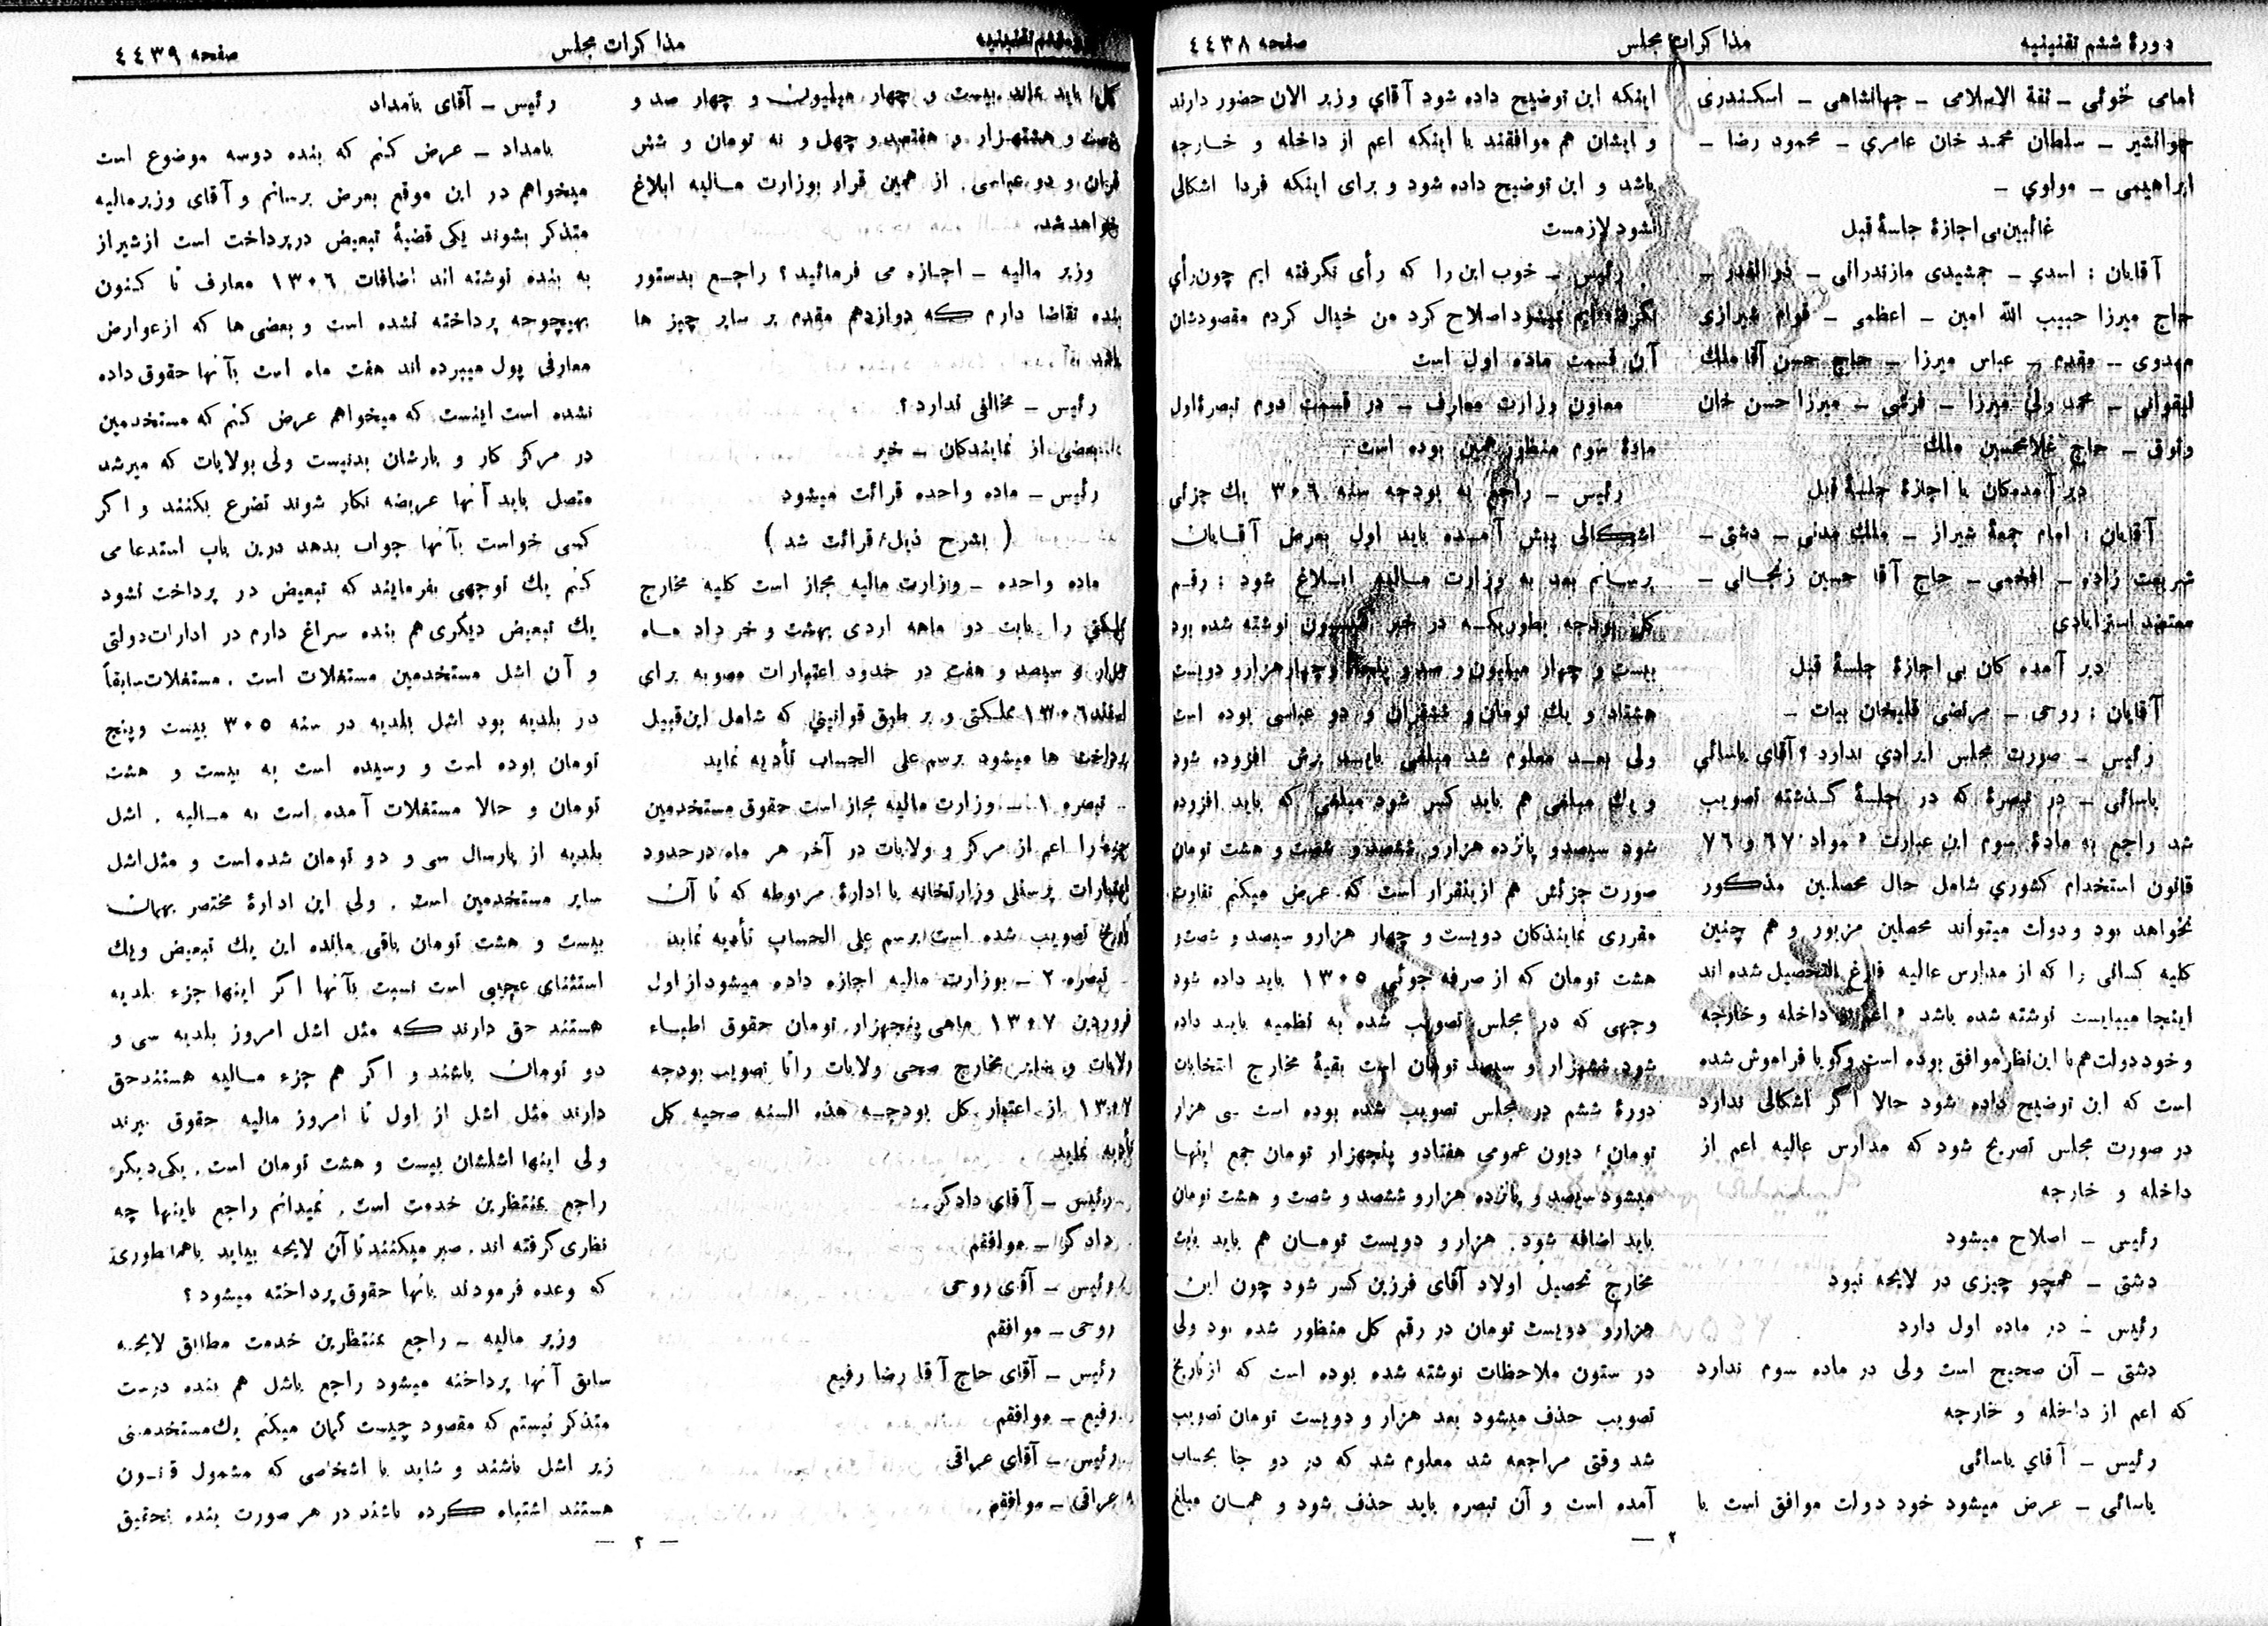 دورهٔ ششم تقنینیه
مذاکرات مجلس
صفحه ٤٤٣٨
امامی خوئی ـ ثقة الاسلامی ـ جهانشاهی ـ اسکندری
جوانشیر ـ سلطان محمد خان عامری ـ محمود رضا ـ
ابراهیمی ـ مولوی ـ
غائبین بی اجازهٔ جلسهٔ قبل
آقایان : اسدی ـ جمشیدی مازندرانی ـ ذوالقدر ـ
حاج میرزا حبیب الله امین ـ اعظمی ـ قوام شیرازی
مهدوی ـ مقدم ـ عباس میرزا ـ حاج حسن آقا ملك
لیقوانی ـ محمد ولی میرزا ـ فرشی ـ میرزا حسن خان
وثوق ـ حاج غلامحسین ملك
دیر آمدەگان با اجازهٔ جلسهٔ قبل
آقایان : امام جمعهٔ شیراز ـ ملك مدنی ـ دشتی ـ
شریعت زاده ـ افخمی ـ حاج آقا حسین زنجانی ـ
معتضد استرابادی
دیر آمده گان بی اجازهٔ جلسهٔ قبل
آقایان : روحی ـ مرتضی قلیخان بیات ـ
رئیس ـ صورت مجلس ایرادی ندارد ؟ آقای یاسائی
یاسائی ـ در تبصرهٔ که در جلسهٔ گذشته تصویب
شد راجع به مادهٔ سوم این عبارت « مواد ٦٧ و ٧٦
قانون استخدام کشوری شامل حال محصلین مذکور
نخواهد بود و دولت میتواند محصلین مزبور و هم چنین
کلیه کسانی را که از مدارس عالیه فارغ التحصیل شده اند
اینجا میبایست نوشته شده باشد « اعم از داخله و خارجه
و خود دولت هم با این نظر موافق بوده است و گویا فراموش شده
است که این توضیح داده شود حالا اگر اشکالی ندارد
در صورت مجلس تصریح شود که مدارس عالیه اعم از
داخله و خارجه
رئیس ـ اصلاح میشود
دشتی ـ همچو چیزی در لایحه نبود
رئیس ـ در ماده اول دارد
دشتی ـ آن صحیح است ولی در ماده سوم ندارد
که اعم از داخله و خارجه
رئیس ـ آقای یاسائی
یاسائی ـ عرض میشود خود دولت موافق است با
اینکه این توضیح داده شود آقای وزیر الان حضور دارند
و ایشان هم موافقند با اینکه اعم از داخله و خارجه
باشد و این توضیح داده شود و برای اینکه فردا اشکالی
نشود لازمست
رئیس ـ خوب این را که رأی نگرفته ایم چون رأی
نگرفته ایم میشود اصلاح کرد من خیال کردم مقصودشان
آن قسمت ماده اول است
معاون وزارت معارف ـ در قسمت دوم تبصرهٔ اول
مادهٔ سوم منظور همین بوده است
رئیس ـ راجع به بودجه سنه ٣٠٦ یك جزئی
اشکالی پیش آمده باید اول بعرض آقایان
برسانم بعد به وزارت مالیه ابلاغ شود : رقم
کل بودجه بطوریکه در خبر کمیسیون نوشته شده بود
بیست و چهار میلیون و صد و پنجاه و چهار هزار و دویست
هشتاد و یك تومان و ششقران و دو عباسی بوده است
ولی بعد معلوم شد مبلغی باید برش افزوده شود
و یك مبلغی هم باید کسر شود مبلغی که باید افزوده
شود سیصد و پانزده هزار و ششصد و شصت و هشت تومان
صورت جزئش هم از اینقرار است که عرض میکنم تفاوت
مقرری نمایندگان دویست و چهار هزار و سیصد و شصت و
هشت تومان که از صرفه جوئی ١٣٠٥ باید داده شود
وجهی که در مجلس تصویب شده به نظمیه باید داده
شود ششهزار و سیصد تومان است بقیهٔ مخارج انتخابات
دورهٔ ششم در مجلس تصویب شده بوده است سی هزار
تومان ، دیون عمومی هفتاد و پنجهزار تومان جمع اینها
میشود سیصد و پانزده هزار و ششصد و شصت و هشت تومان
باید اضافه شود. هزار و دویست تومان هم باید بابت
مخارج تحصیل اولاد آقای فرزین کسر شود چون این
هزار و دویست تومان در رقم کل منظور شده بود ولی
در ستون ملاحظات نوشته شده بوده است که از تاریخ
تصویب حذف میشود بعد هزار و دویست تومان تصویب
شد وقتی مراجعه شد معلوم شد که در دو جا بحساب
آمده است و آن تبصره باید حذف شود و همان مبلغ
— ٢
مذاکرات مجلس
صفحه ٤٤٣٩
کل باید بماند بیست و چهار میلیون و چهار صد و
شصت و هشتهزار و هفتصد و چهل و نه تومان و شش
قران و دو عباسی . از همین قرار بوزارت مالیه ابلاغ
خواهد شد
وزیر مالیه ـ اجازه می فرمائید ؟ راجع بدستور
بنده تقاضا دارم که دوازدهم مقدم بر سایر چیز ها
باشد
رئیس ـ مخالفی ندارد ؟
بعضی از نمایندکان ـ خیر
رئیس ـ ماده واحده قرائت میشود
( بشرح ذیل قرائت شد )
ماده واحده ـ وزارت مالیه مجاز است کلیه مخارج
مملکتی را بابت دو ماهه اردی بهشت و خرداد ماه
هزار و سیصد و هفت در حدود اعتبارات مصوبه برای
اسفند ١٣٠٦ مملکتی و بر طبق قوانینی که شامل این قبیل
پرداخت ها میشود برسم علی الحساب تأدیه نماید
تبصره ١ ـ وزارت مالیه مجاز است حقوق مستخدمین
جزء را اعم از مرکز و ولایات در آخر هر ماه در حدود
اعتبارات پرسنلی وزارتخانه یا ادارهٔ مربوطه که تا آن
تاریخ تصویب شده است برسم علی الحساب تأدیه نماید
تبصره ٢ ـ بوزارت مالیه اجازه داده میشود از اول
فروردین ١٣٠٧ ماهی پنجهزار تومان حقوق اطباء
ولایات و سایر مخارج صحی ولایات را تا تصویب بودجه
١٣٠٧ از اعتبار کل بودجه هذه السنه صحیه کل
تأدیه نماید
رئیس ـ آقای دادگر
دادگر ـ موافقم
رئیس ـ آقای روحی
روحی ـ موافقم
رئیس ـ آقای حاج آقا رضا رفیع
رفیع ـ موافقم
رئیس ـ آقای عراقی
عراقی ـ موافقم
رئیس ـ آقای بامداد
بامداد ـ عرض کنم که بنده دوسه موضوع است
میخواهم در این موقع بعرض برسانم و آقای وزیر مالیه
متذکر بشوند یکی قضیهٔ تبعیض در پرداخت است از شیراز
به بنده نوشته اند اضافات ١٣٠٦ معارف تا کنون
بهیچوجه پرداخته نشده است و بعضی ها که از عوارض
معارفی پول میبرده اند هفت ماه است بآنها حقوق داده
نشده است اینست که میخواهم عرض کنم که مستخدمین
در مرکز کار و بارشان بدنیست ولی بولایات که میرسد
متصل باید آنها عریضه نگار شوند تضرع بکنند و اگر
کسی خواست بآنها جواب بدهد درین باب استدعا می
کنم یك توجهی بفرمایند که تبعیض در پرداخت نشود
یك تبعیض دیگری هم بنده سراغ دارم در ادارات دولتی
و آن اشل مستخدمین مستغلات است . مستغلات سابقاً
در بلدیه بود اشل بلدیه در سنه ٣٠٥ بیست وپنج
تومان بوده است و رسیده است به بیست و هشت
تومان و حالا مستغلات آمده است به مالیه . اشل
بلدیه از پارسال سی و دو تومان شده است و مثل اشل
سایر مستخدمین است . ولی این ادارهٔ مختصر بهمان
بیست و هشت تومان باقی مانده این یك تبعیض ویك
استثنای عجیبی است نسبت بآنها اگر اینها جزء بلدیه
هستند حق دارند که مثل اشل امروز بلدیه سی و
دو تومان باشند و اگر هم جزء مالیه هستند حق
دارند مثل اشل از اول تا امروز مالیه حقوق ببرند
ولی اینها اشلشان بیست و هشت تومان است. یکی دیگر
راجع بمنتظرین خدمت است . نمیدانم راجع باینها چه
نظری گرفته اند. صبر میکنند تا آن لایحه بیاید یا همانطوری
که وعده فرمودند بآنها حقوق پرداخته میشود ؟
وزیر مالیه ـ راجع بمنتظرین خدمت مطابق لایحه
سابق آنها پرداخته میشود راجع باشل هم بنده درست
متذکر نیستم که مقصود چیست گمان میکنم یك مستخدمینی
زیر اشل باشند و شاید با اشخاصی که مشمول قانون
هستند اشتباه کرده باشند در هر صورت بنده تحقیق
— ٢ —